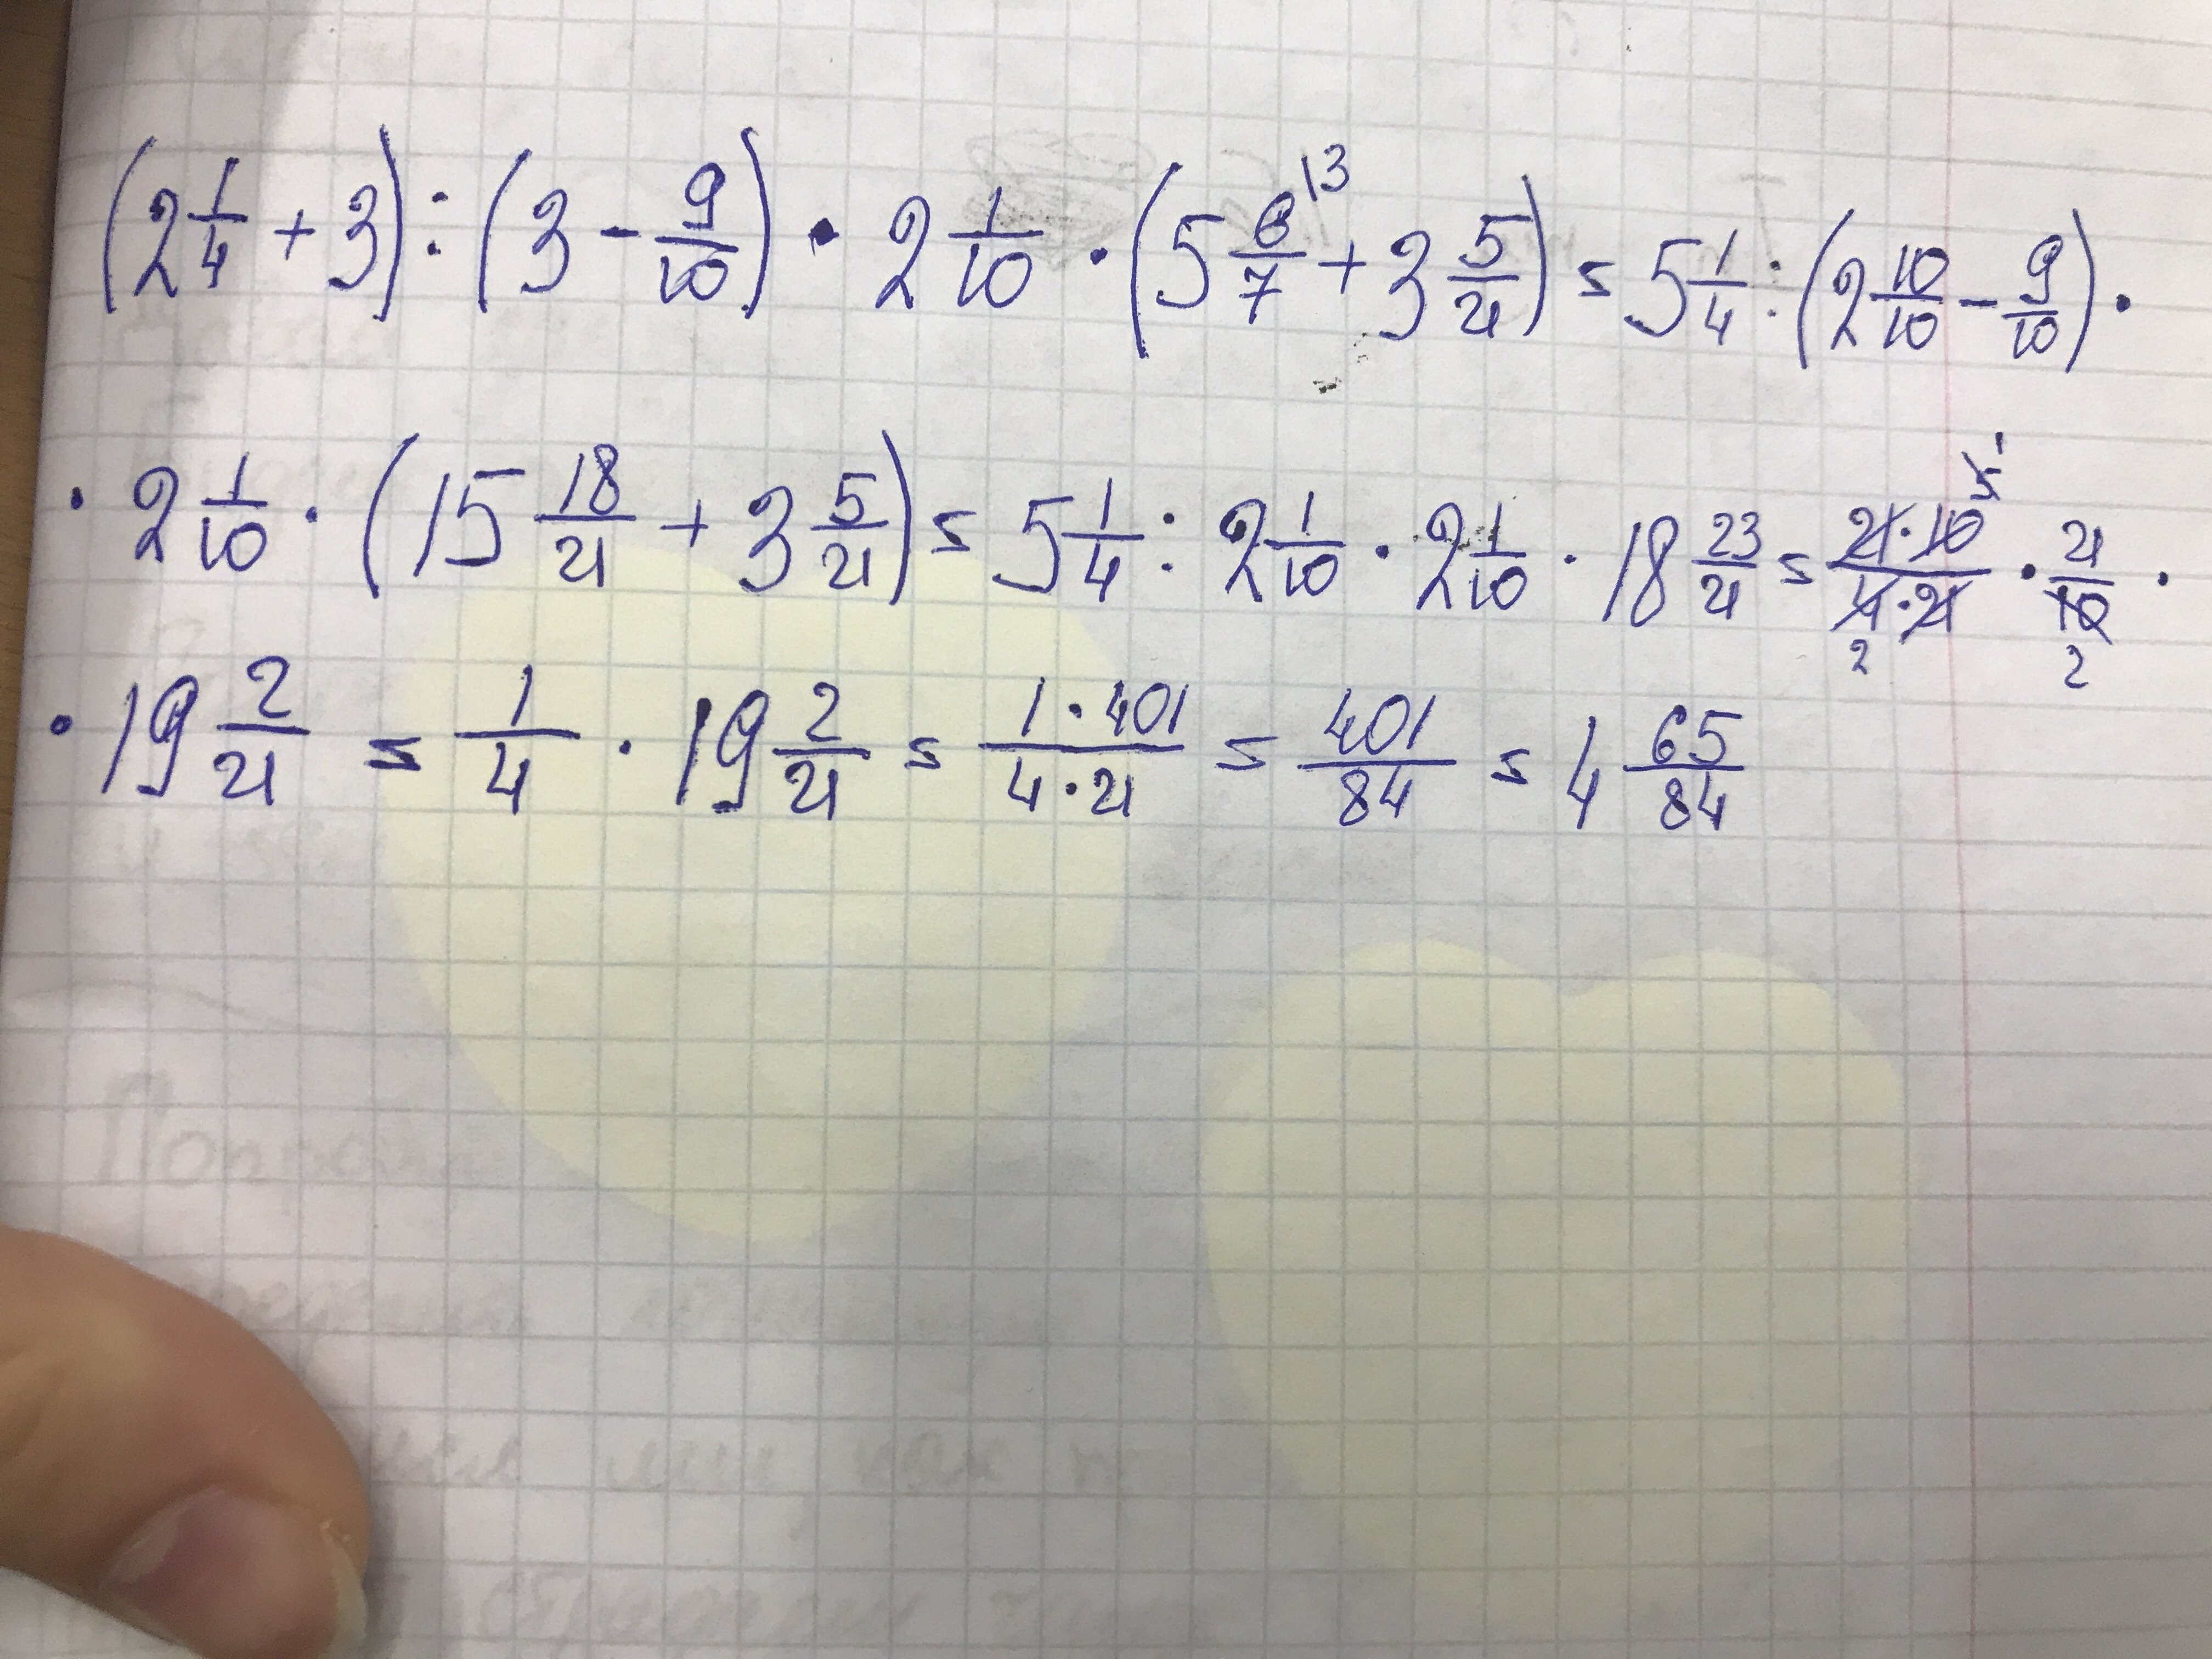 (2 1/4 + 3) : (3 - 9/10) · 2 1/10 · (5 6/7 ^13 + 3 5/21) = 5 1/4 : (2 10/10 - 9/10) ·
· 2 1/10 · (15 18/21 + 3 5/21) = 5 1/4 : 2 1/10 · 2 1/10 · 18 23/21 = 21·10 5 1/4·21 2 · 21/10 2 ·
· 19 2/21 = 1/4 · 19 2/21 = 1·401/4·21 = 401/84 = 4 65/84